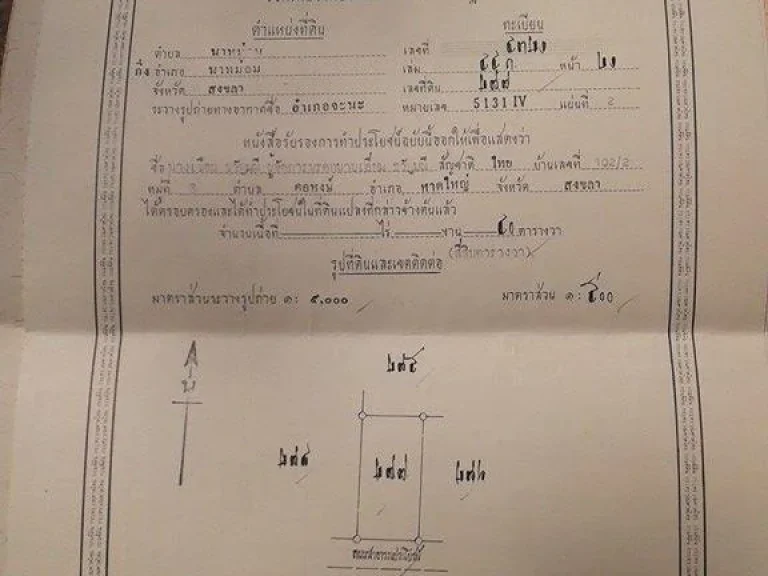 ตำแหน่งที่ดิน
ทะเบียน
ตำบล นาหม่อม เลขที่ ๔๓๒
กิ่ง อำเภอ นาหม่อม เล่ม ๔๔ก หน้า ๒
จังหวัด สงขลา เลขที่ดิน ๒๗๗
ระวางรูปถ่ายทางอากาศชื่อ อำเภอจะนะ หมายเลข 5131 IV แผ่นที่ 2
หนังสือรับรองการทำประโยชน์ฉบับนี้ออกให้เพื่อแสดงว่า
ชื่อ สัญชาติ ไทย บ้านเลขที่ 192/2
หมู่ที่ 3 ตำบล คอหงษ์ อำเภอ หาดใหญ่ จังหวัด สงขลา
ได้ครอบครองและได้ทำประโยชน์ในที่ดินแปลงที่กล่าวข้างต้นแล้ว
จำนวนเนื้อที่ ไร่ งาน ๔๐ ตารางวา
(สี่สิบตารางวา)
รูปที่ดินและเขตติดต่อ
มาตราส่วนระวางรูปถ่าย ๑: ๕,๐๐๐ มาตราส่วน ๑: ๔๐๐
น
๒๗๕
๒๗๗ ๒๗๖